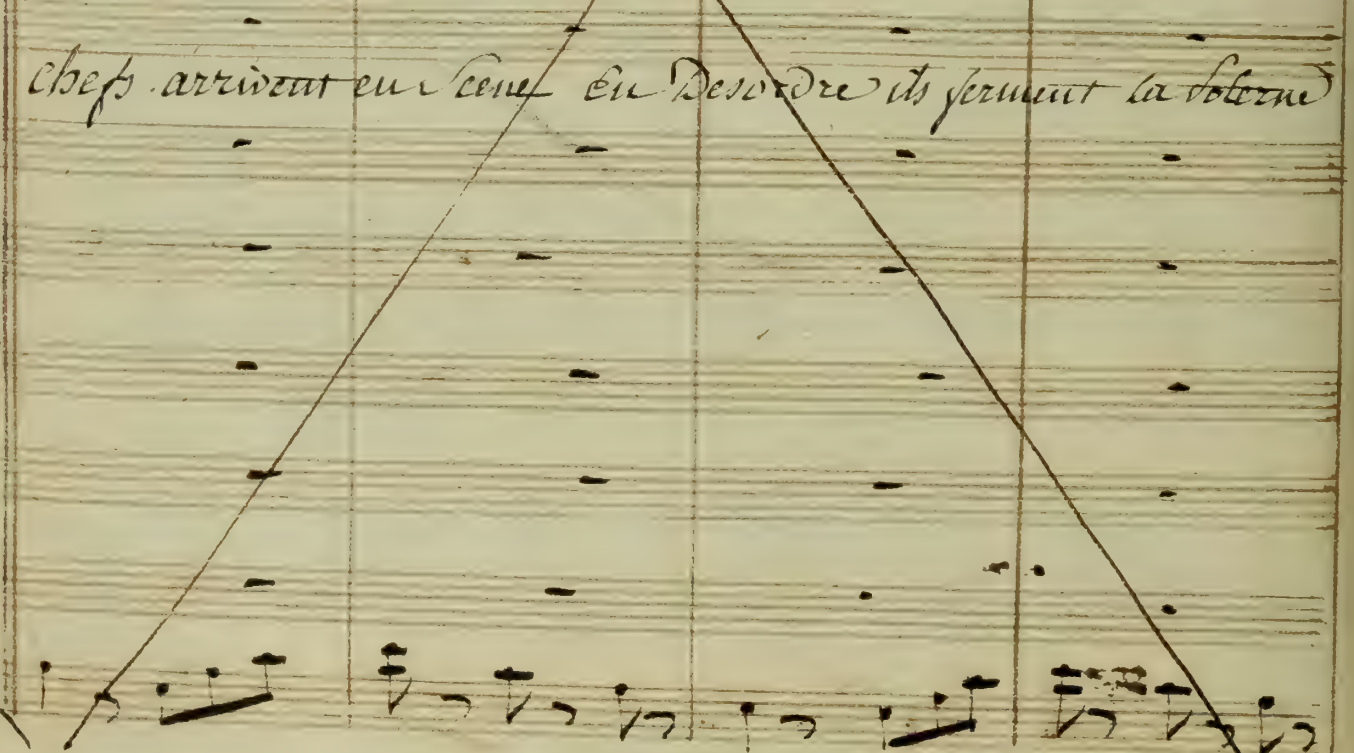 chefs arrivent en Scene En Desordre ils ferment la Poterne